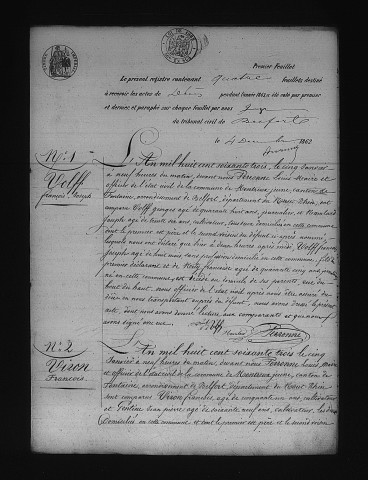 Premier Feuillet
Le présent registre contenant quatre feuillets destiné
à recevoir les actes de Décès pendant l'année 1863 a été coté par premier
et dernier, et paraphé sur chaque feuillet par nous Juge
du tribunal civil de Belfort
le 4 Décembre 1862
N.° 1
Wolff
françois Joseph
L'An mil huit cent soixante trois, le cinq Janvier
à neuf heures du matin, devant nous Perronne Louis Maire et
officier de l'état civil de la commune de Montreux jeune, canton de
Fontaine, arrondissement de Belfort, département du Haut Rhin, sont
comparu Wolff georges agé de quarante huit ans, journalier, et
Joseph agé de ans, cultivateur, tous deux domiciliés en cette commune
dont le premier est père et le second voisin du défunt ci après nommé
lesquels nous ont déclaré que hier à deux heures après midi, Wolff françois
Joseph agé de huit mois sans profession domicilié en cette commune, fils du
premier déclarant et de agé de quarante cinq ans
né en cette commune, est décédé au domicile de ses parents,
du haut, nous officier de l'état civil après nous être
en nous transportant auprès du défunt, nous avons dressé le présent
acte, dont nous avons donné lecture aux comparants et
avons signé avec eux.
Wolff
Perronne
N.° 2
Viron
Francois
L'An mil huit cent soixante trois le cinq
Janvier à neuf heures du matin, devant nous Perronne Louis, Maire
et officier de l'état civil de la commune de Montreux jeune, canton de
Fontaine, arrondissement de Belfort, département du Haut Rhin
sont comparus Viron françois, agé de cinquante ans, cultivateur
et Jean pierre agé de soixante neuf ans, cultivateur, les deux
domiciliés en cette commune et dont le premier est père et le second voisin